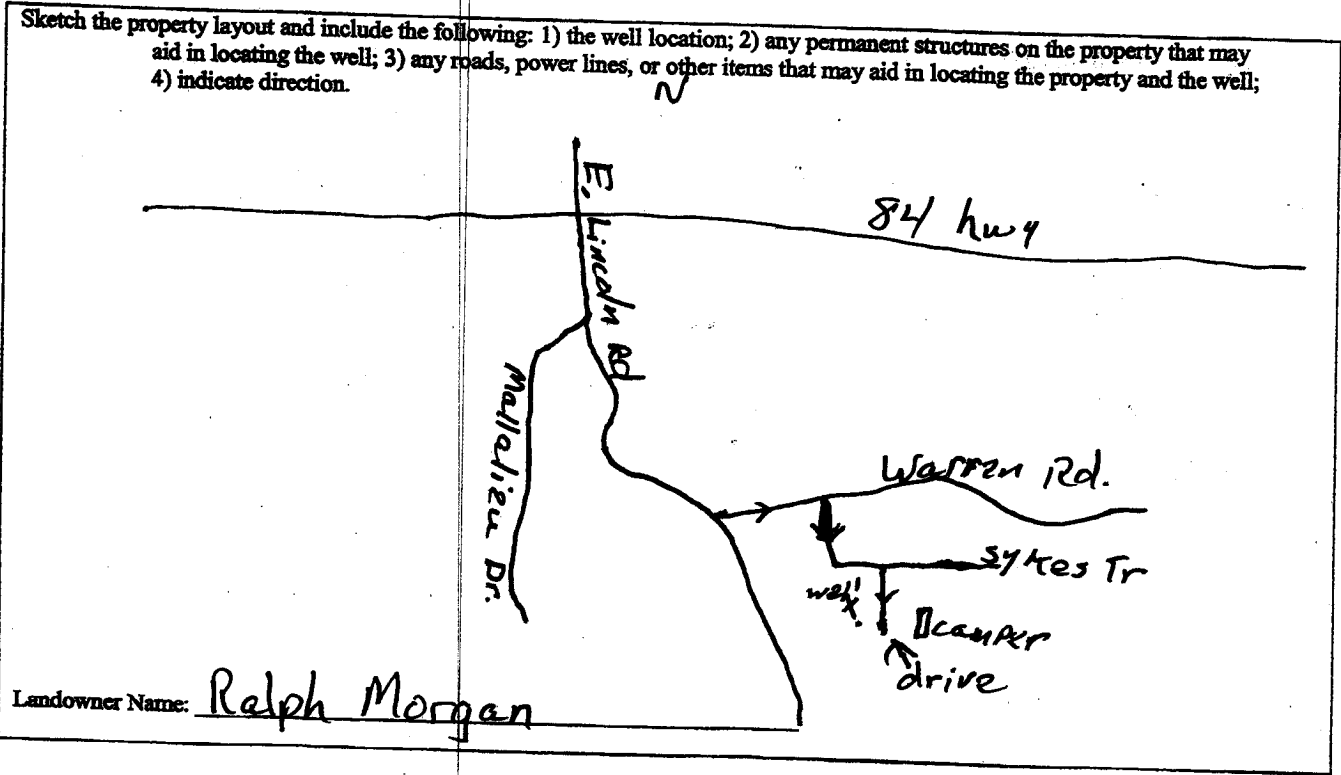 Sketch the property layout and include the following: 1) the well location; 2) any permanent structures on the property that may
aid in locating the well; 3) any roads, power lines, or other items that may aid in locating the property and the well;
4) indicate direction.
N
84 hwy
E. Lincoln Rd
Mallalieu Dr.
Warren Rd.
Sykes Tr
well
camper
drive
Landowner Name: Ralph Morgan